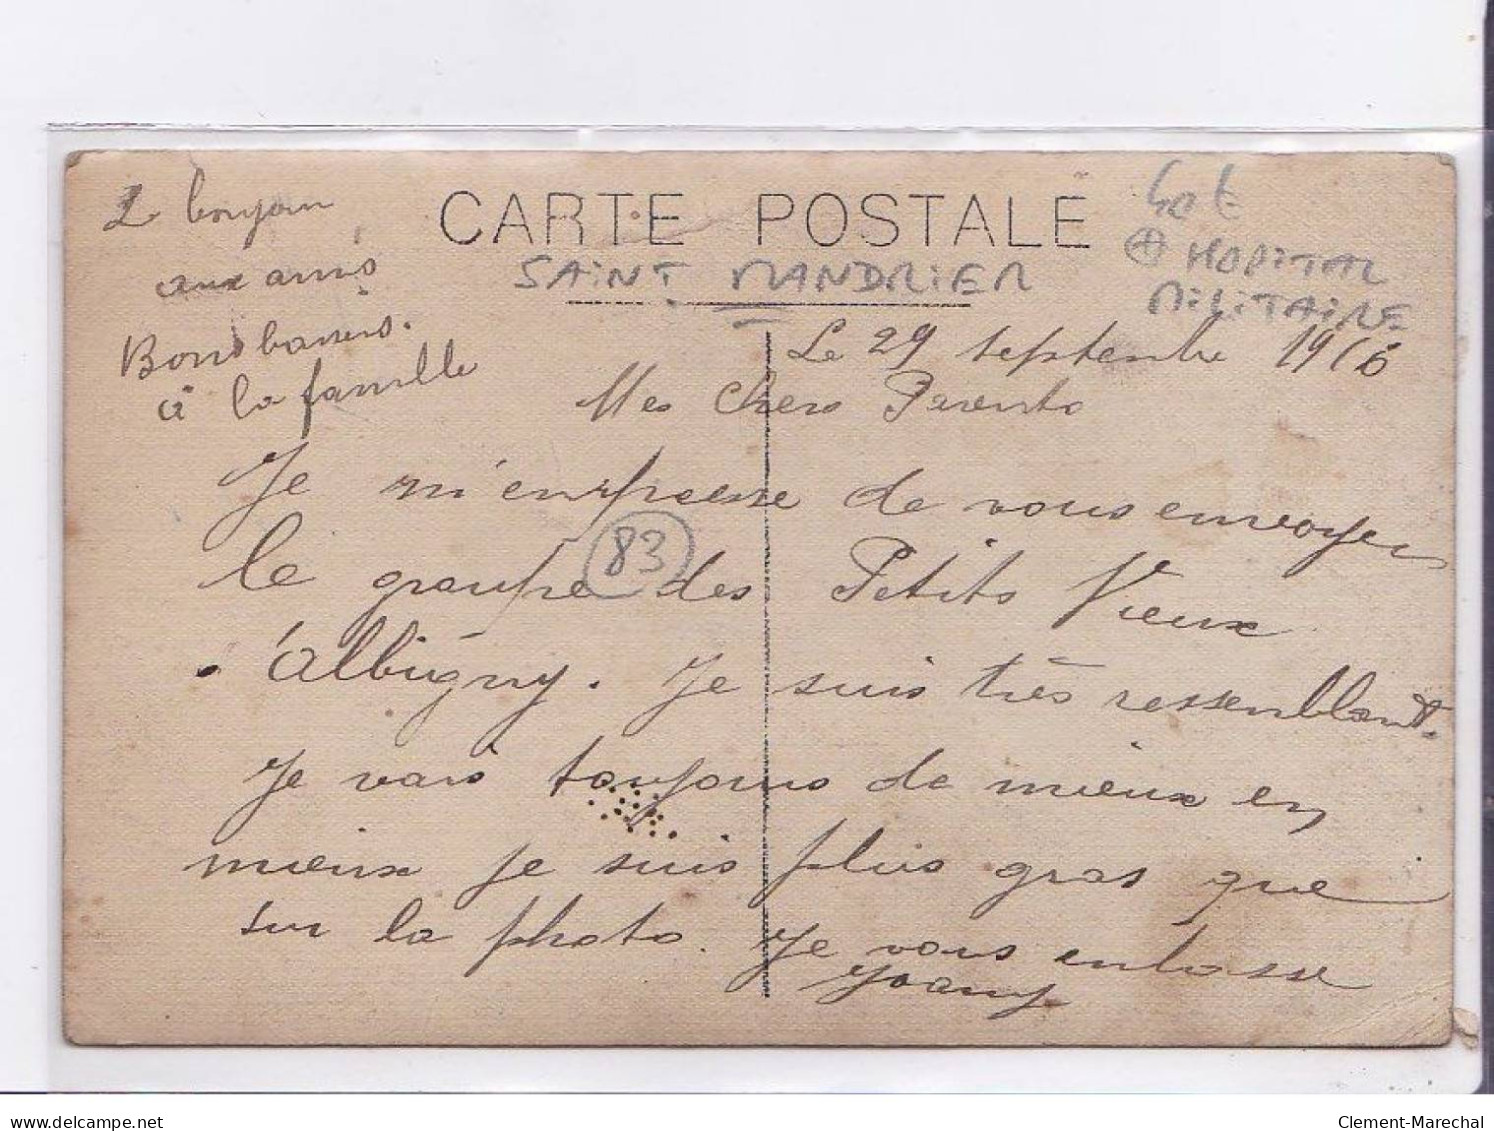 bonjour
aux amis
Bons baisers.
à la famille
CARTE POSTALE
SAiNT MANDRiER
HOPiTAL
MiLiTAiRE
Le 29 septembre 1916
Mes Chers Parents
Je m'empresse de vous envoyer
le groupe des Petits Vieux
83
d'albigny. Je suis très ressemblant.
Je vais toujours de mieux en
mieux je suis plus gras que
sur la photo. Je vous embrasse
Joany
delcampe.net
Clement-Marechal